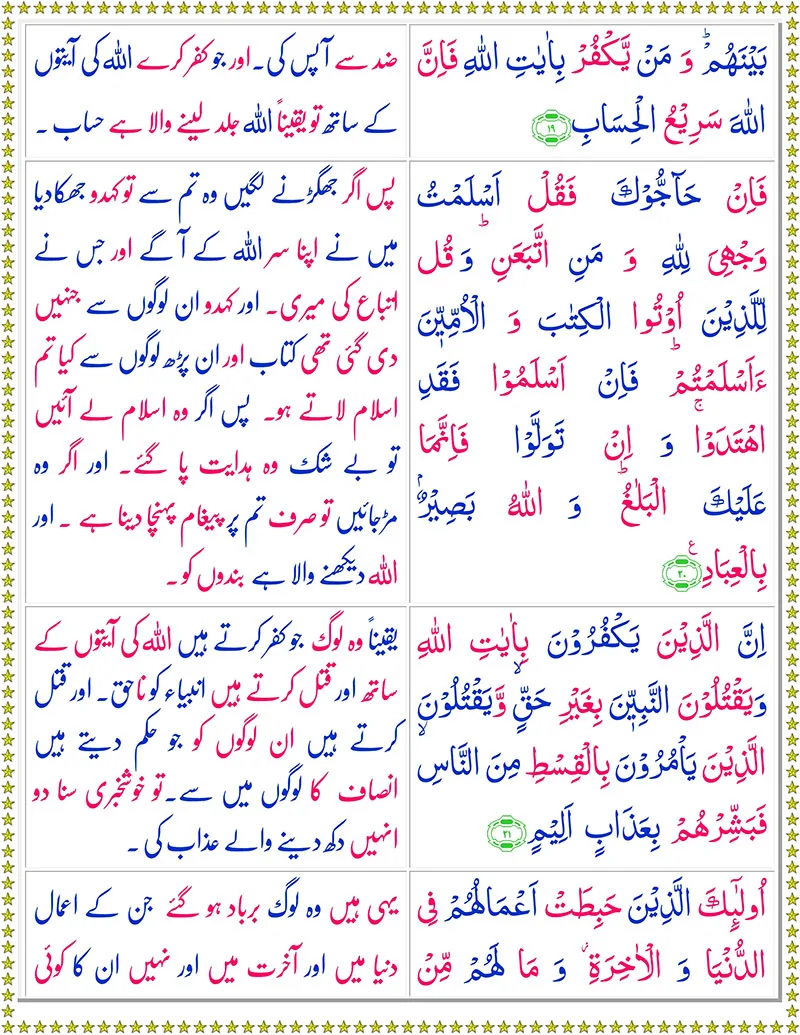 بَيْنَهُمْ ؕ وَ مَنْ يَّكْفُرْ بِاٰيٰتِ اللّٰهِ فَاِنَّ
اللّٰهَ سَرِيْعُ الْحِسَابِ ۱۹
ضد سے آپس کی۔ اور جو کفر کرے اللہ کی آیتوں
کے ساتھ تو یقیناً اللہ جلد لینے والا ہے حساب ۔
فَاِنْ حَآجُّوْكَ فَقُلْ اَسْلَمْتُ
وَجْهِيَ لِلّٰهِ وَ مَنِ اتَّبَعَنِ ؕ وَ قُل
لِّلَّذِيْنَ اُوْتُوا الْكِتٰبَ وَ الْاُمِّيّٖنَ
ءَاَسْلَمْتُمْ ؕ فَاِنْ اَسْلَمُوْا فَقَدِ
اهْتَدَوْا ۚ وَ اِنْ تَوَلَّوْا فَاِنَّمَا
عَلَيْكَ الْبَلٰغُ ؕ وَ اللّٰهُ بَصِيْرٌۢ
بِالْعِبَادِ ع ۲۰
پس اگر جھگڑنے لگیں وہ تم سے تو کہدو جھکادیا
میں نے اپنا سر اللہ کے آگے اور جس نے
اتباع کی میری۔ اور کہدو ان لوگوں سے جنہیں
دی گئی تھی کتاب اور ان پڑھ لوگوں سے کیا تم
اسلام لاتے ہو۔ پس اگر وہ اسلام لے آئیں
تو بے شک وہ ہدایت پا گئے۔ اور اگر وہ
مڑجائیں تو صرف تم پر پیغام پہنچا دینا ہے ۔ اور
اللہ دیکھنے والا ہے بندوں کو ۔
اِنَّ الَّذِيْنَ يَكْفُرُوْنَ بِاٰيٰتِ اللّٰهِ
وَيَقْتُلُوْنَ النَّبِيّٖنَ بِغَيْرِ حَقٍّ ۙ وَّيَقْتُلُوْنَ
الَّذِيْنَ يَاْمُرُوْنَ بِالْقِسْطِ مِنَ النَّاسِ ۙ
فَبَشِّرْهُمْ بِعَذَابٍ اَلِيْمٍ ۲۱
یقیناً وہ لوگ جو کفر کرتے ہیں اللہ کی آیتوں کے
ساتھ اور قتل کرتے ہیں انبیاء کو ناحق۔ اور قتل
کرتے ہیں ان لوگوں کو جو حکم دیتے ہیں
انصاف کا لوگوں میں سے۔ تو خوشخبری سنا دو
انہیں دکھ دینے والے عذاب کی ۔
اُولٰٓئِكَ الَّذِيْنَ حَبِطَتْ اَعْمَالُهُمْ فِي
الدُّنْيَا وَ الْاٰخِرَةِ ؗ وَ مَا لَهُمْ مِّنْ
یہی ہیں وہ لوگ برباد ہو گئے جن کے اعمال
دنیا میں اور آخرت میں اور نہیں ان کا کوئی